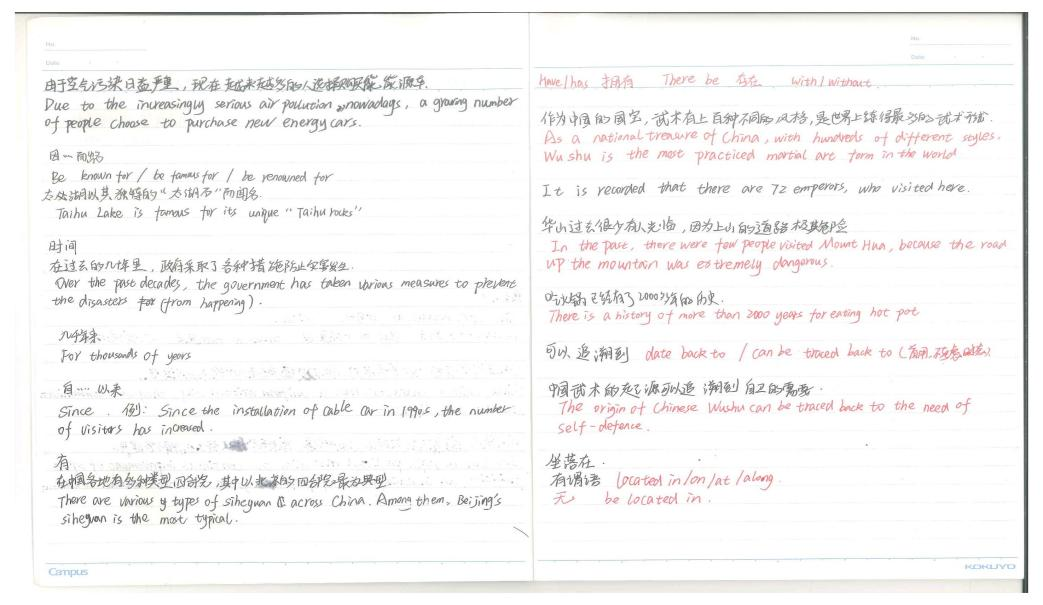 No.
Date
由于空气污染日益严重，现在越来越多的人选择购买新能源车.
Due to the increasingly serious air pollution, nowadays, a growing number
of people choose to purchase new energy cars.
因…而出名
Be known for / be famous for / be renowned for
太湖以其独特的“太湖石”而闻名.
Taihu Lake is famous for its unique "Taihu rocks"
时间
在过去的几十年里，政府采取了各种措施防止灾害发生.
Over the past decades, the government has taken various measures to prevent
the disasters (from happening).
几千年来
For thousands of years
自…… 以来
Since . 例: Since the installation of Cable Car in 1990s, the number
of visitors has increased.
有
在中国各地有多种类型四合院，其中以北京的四合院最为典型.
There are various y types of siheyuan across China. Among them, Beijing's
siheyuan is the most typical.
Campus
No.
Date
Have/has 拥有 There be 存在 With/without.
作为中国的国宝，武术有上百种不同的风格，是世界上练得最多的武术形式.
As a national treasure of China, with hundreds of different styles.
Wu shu is the most practiced martial art form in the world
It is recorded that there are 72 emperors, who visited here.
华山过去很少有人光临，因为上山的道路极其危险
In the past, there were few people visited Mount Hua, because the road
up the mountain was extremely dangerous.
吃火锅已经有了2000多年的历史.
There is a history of more than 2000 years for eating hot pot
可以追溯到 date back to / can be traced back to
中国武术的起源可以追溯到自卫的需要.
The origin of Chinese Wushu can be traced back to the need of
self-defence.
坐落在.
有谓语 located in/on/at/along
无 be located in.
KOKUYO